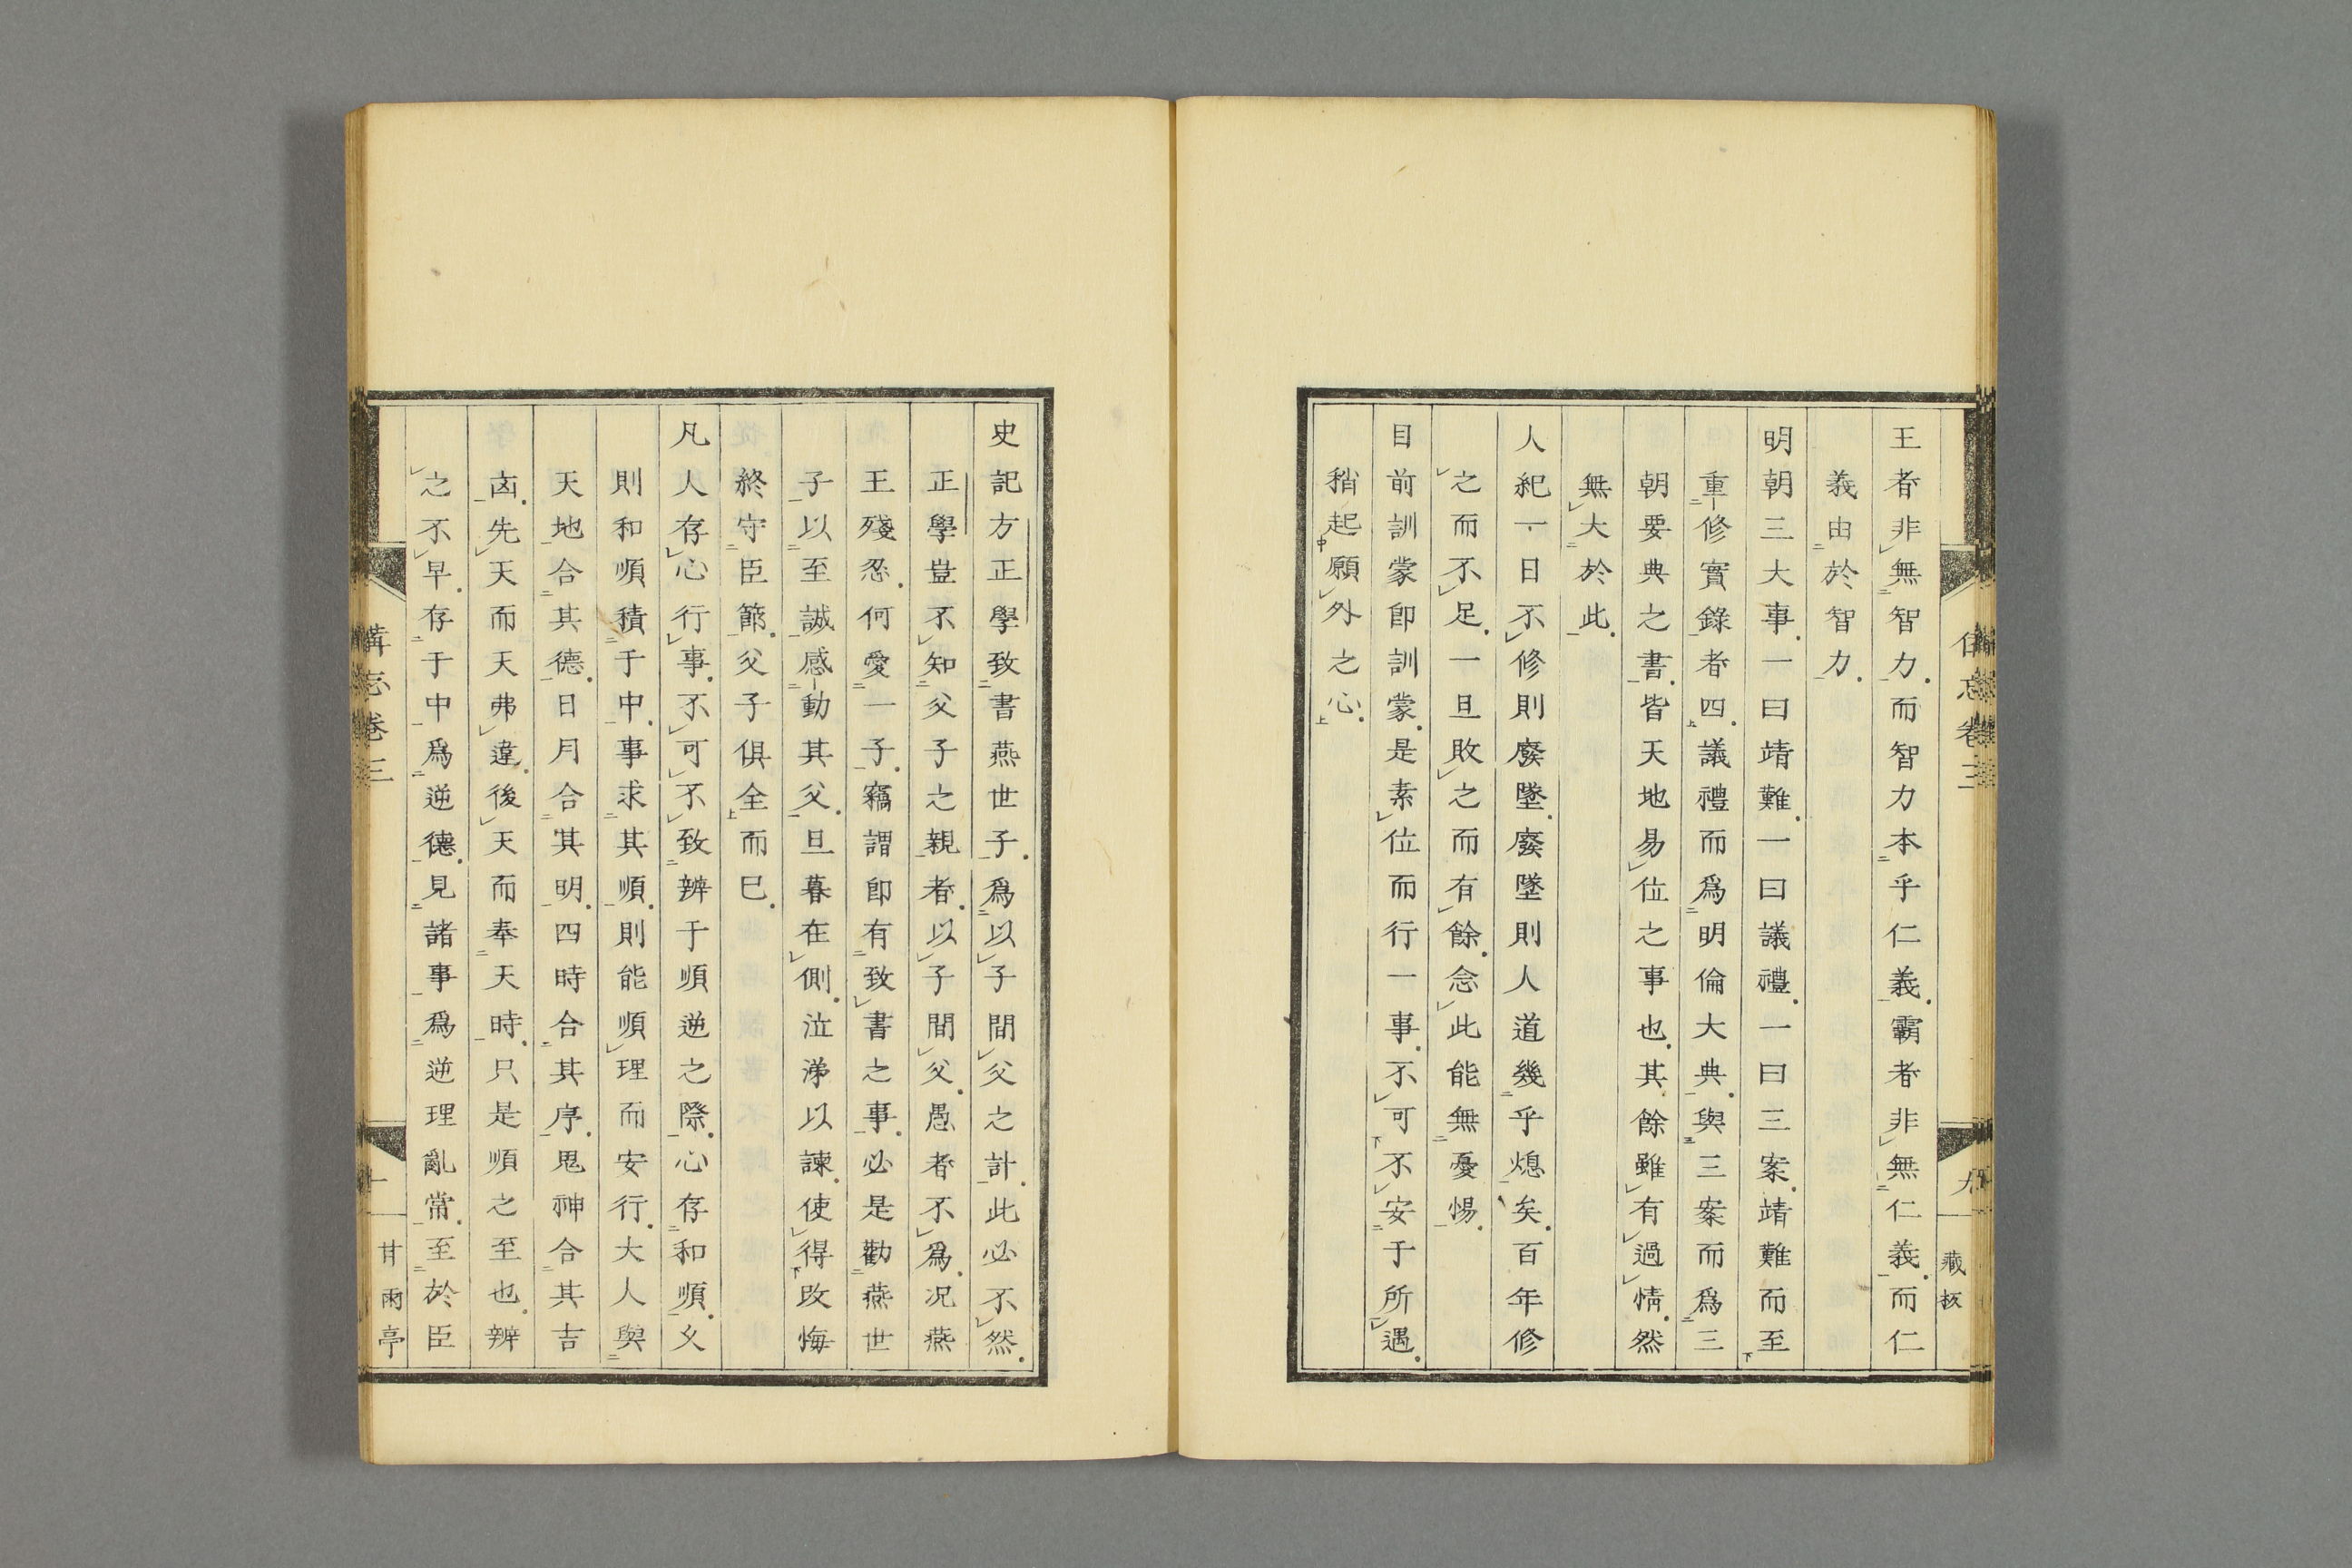 王者非無智力而智力本乎仁義霸者非無仁義而仁
義由於智力
明朝三大事一曰靖難一曰議禮一曰三案靖難而至
重修實錄者四議禮而爲明倫大典與三案而爲三
朝要典之書皆天地易位之事也其餘雖有過情然
無大於此
人紀一日不修則廢墜廢墜則人道幾乎熄矣百年修
之而不足一旦敗之而有餘念此能無憂惕
目前訓蒙卽訓蒙是素位而行一事不可不安于所遇
稍起願外之心
藏板
史記方正學致書燕世子爲以子間父之計此必不然
正學豈不知父子之親者以子間父愚者不爲况燕
王殘忍何愛一子竊謂卽有致書之事必是勸燕世
子以至誠感動其父旦暮在側泣涕以諫使得改悔
終守臣節父子俱全而已
凡人存心行事不可不致辨于順逆之際心存和順
則和順積于中事求其順則能順理而安行大人與
天地合其德日月合其明四時合其序鬼神合其吉
凶先天而天弗違後天而奉天時只是順之至也辨
之不早存于中爲逆德見諸事爲逆理亂常至於臣
備忘卷三
甘雨亭